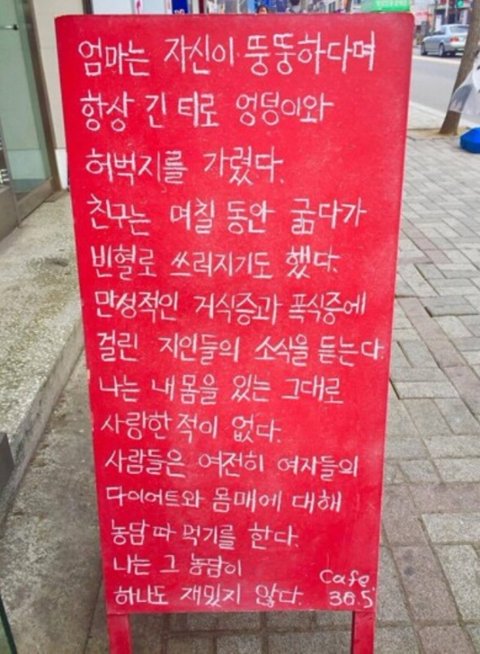 엄마는 자신이 뚱뚱하다며
항상 긴 티로 엉덩이와
허벅지를 가렸다.
친구는 며칠 동안 굶다가
빈혈로 쓰러지기도 했다.
만성적인 거식증과 폭식증에
걸린 지인들의 소식을 듣는다.
나는 내 몸을 있는 그대로
사랑한 적이 없다.
사람들은 여전히 여자들의
다이어트와 몸매에 대해
농담 따 먹기를 한다.
나는 그 농담이
하나도 재밌지 않다.
Cafe
36.5